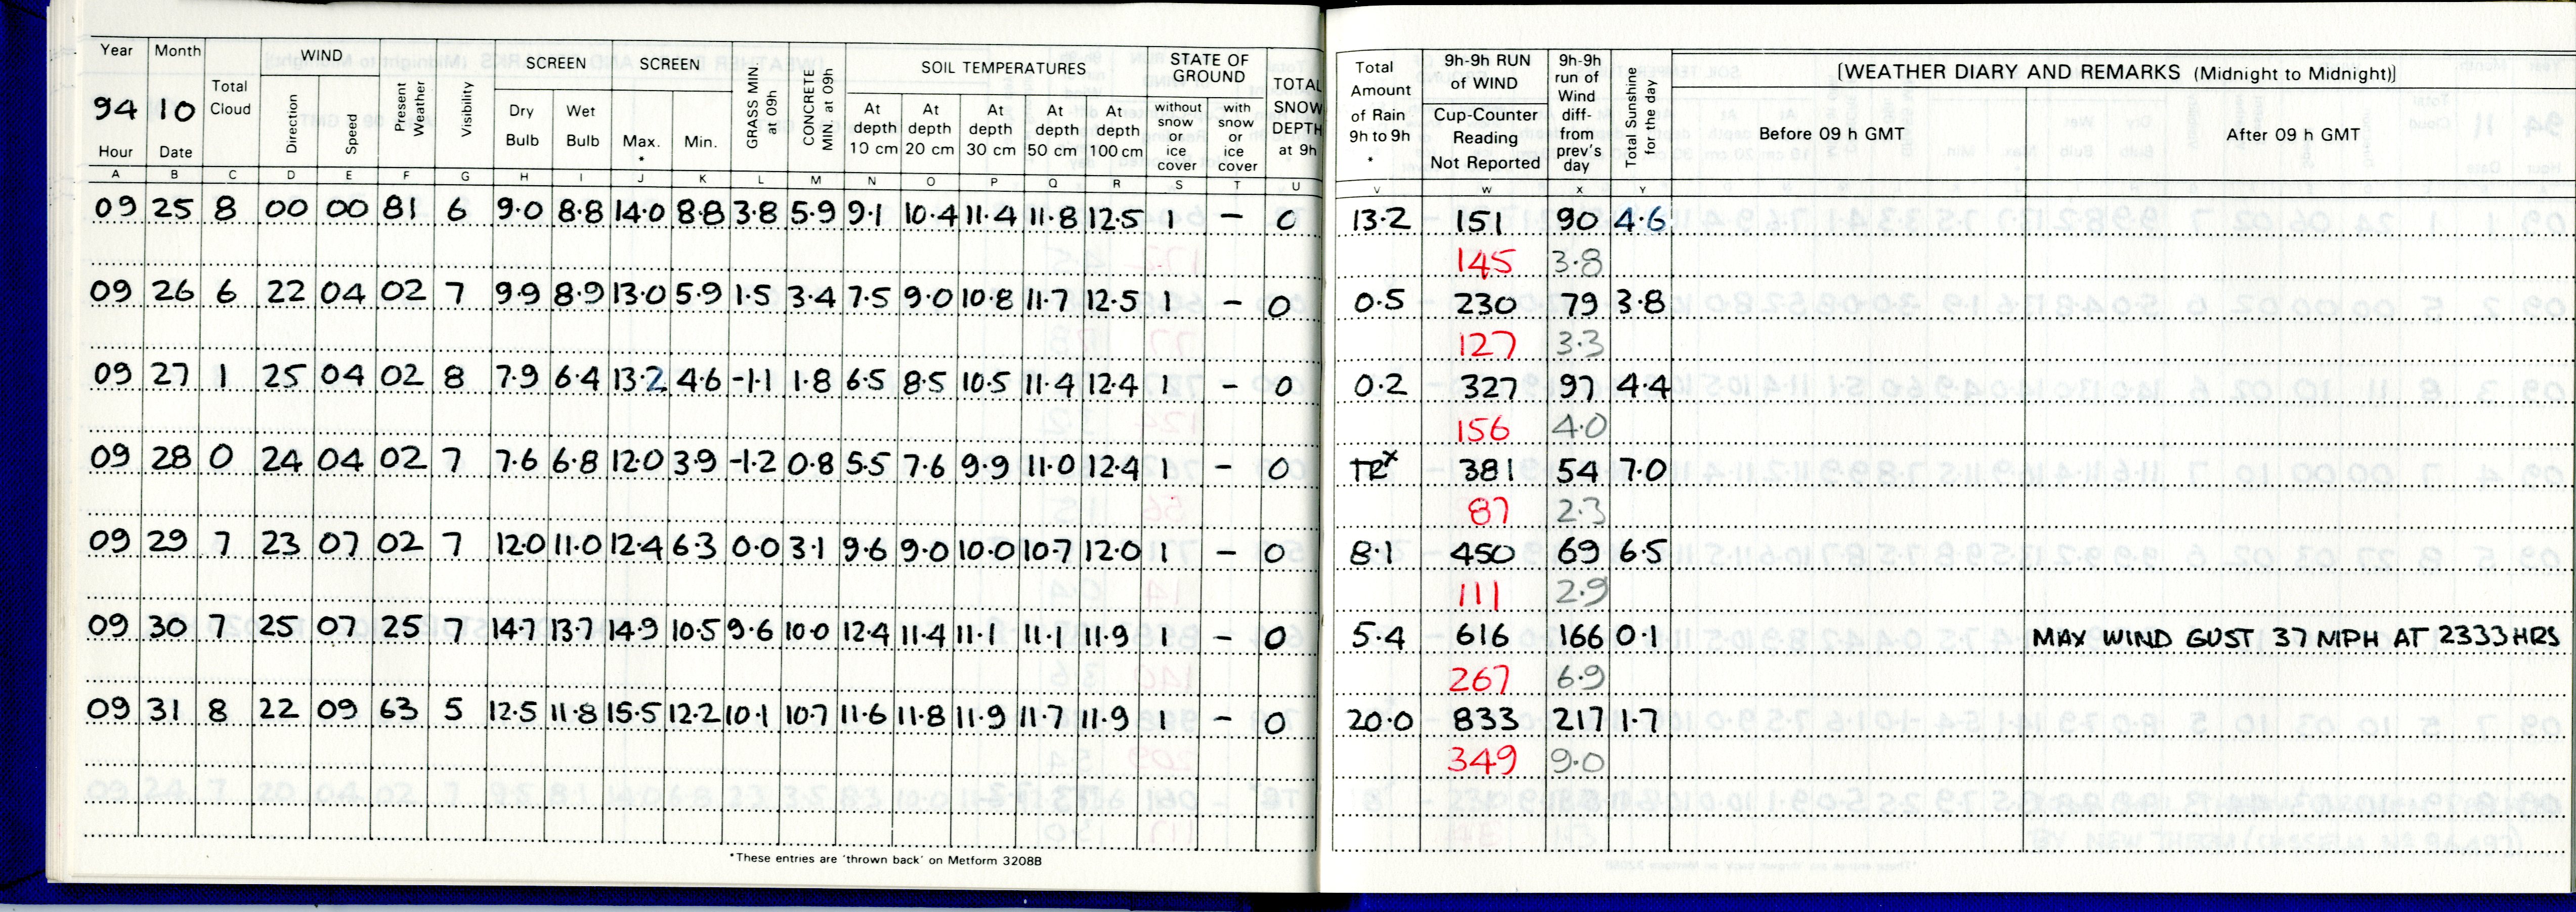 Year Month WIND SCREEN SCREEN SOIL TEMPERATURES STATE OF GROUND
94 10 Total Cloud Direction Speed Present Weather Visibility Dry Bulb Wet Bulb Max. * Min. GRASS MIN at 09h CONCRETE MIN at 09h At depth 10 cm At depth 20 cm At depth 30 cm At depth 50 cm At depth 100 cm without snow or ice cover with snow or ice cover TOTAL SNOW DEPTH at 9h
Hour Date
Total Amount of Rain 9h to 9h * 9h-9h RUN of WIND Cup-Counter Reading Not Reported 9h-9h run of Wind diff- from prev's day Total Sunshine for the day [WEATHER DIARY AND REMARKS (Midnight to Midnight)]
Before 09 h GMT After 09 h GMT
A B C D E F G H I J K L M N O P Q R S T U V W X Y
09 25 8 00 00 81 6 9.0 8.8 14.0 8.8 3.8 5.9 9.1 10.4 11.4 11.8 12.5 1 – 0 13.2 151 90 4.6
145 3.8
09 26 6 22 04 02 7 9.9 8.9 13.0 5.9 1.5 3.4 7.5 9.0 10.8 11.7 12.5 1 – 0 0.5 230 79 3.8
127 3.3
09 27 1 25 04 02 8 7.9 6.4 13.2 4.6 -1.1 1.8 6.5 8.5 10.5 11.4 12.4 1 – 0 0.2 327 97 4.4
156 4.0
09 28 0 24 04 02 7 7.6 6.8 12.0 3.9 -1.2 0.8 5.5 7.6 9.9 11.0 12.4 1 – 0 TRx 381 54 7.0
87 2.3
09 29 7 23 07 02 7 12.0 11.0 12.4 6.3 0.0 3.1 9.6 9.0 10.0 10.7 12.0 1 – 0 8.1 450 69 6.5
111 2.9
09 30 7 25 07 25 7 14.7 13.7 14.9 10.5 9.6 10.0 12.4 11.4 11.1 11.1 11.9 1 – 0 5.4 616 166 0.1 MAX WIND GUST 37 MPH AT 2333HRS
267 6.9
09 31 8 22 09 63 5 12.5 11.8 15.5 12.2 10.1 10.7 11.6 11.8 11.9 11.7 11.9 1 – 0 20.0 833 217 1.7
349 9.0
*These entries are 'thrown back' on Metform 3208B